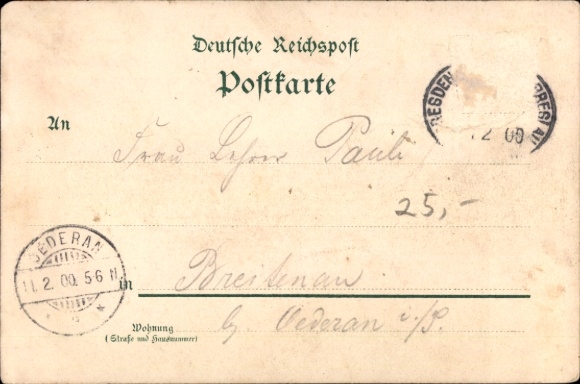 Deutsche Reichspost
Postkarte
RESDEN BRESLAU
2 00
An
Frau Lehrer Pauli
25,-
OEDERAN
11.2.00.5-6 N
in Breitenau
b/ Oederan i./S.
Wohnung
(Straße und Hausnummer)